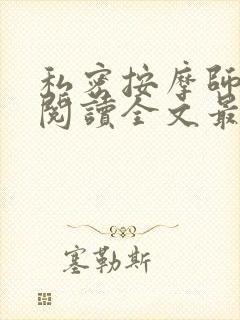 私密按摩師
閱讀全文最
塞勒斯